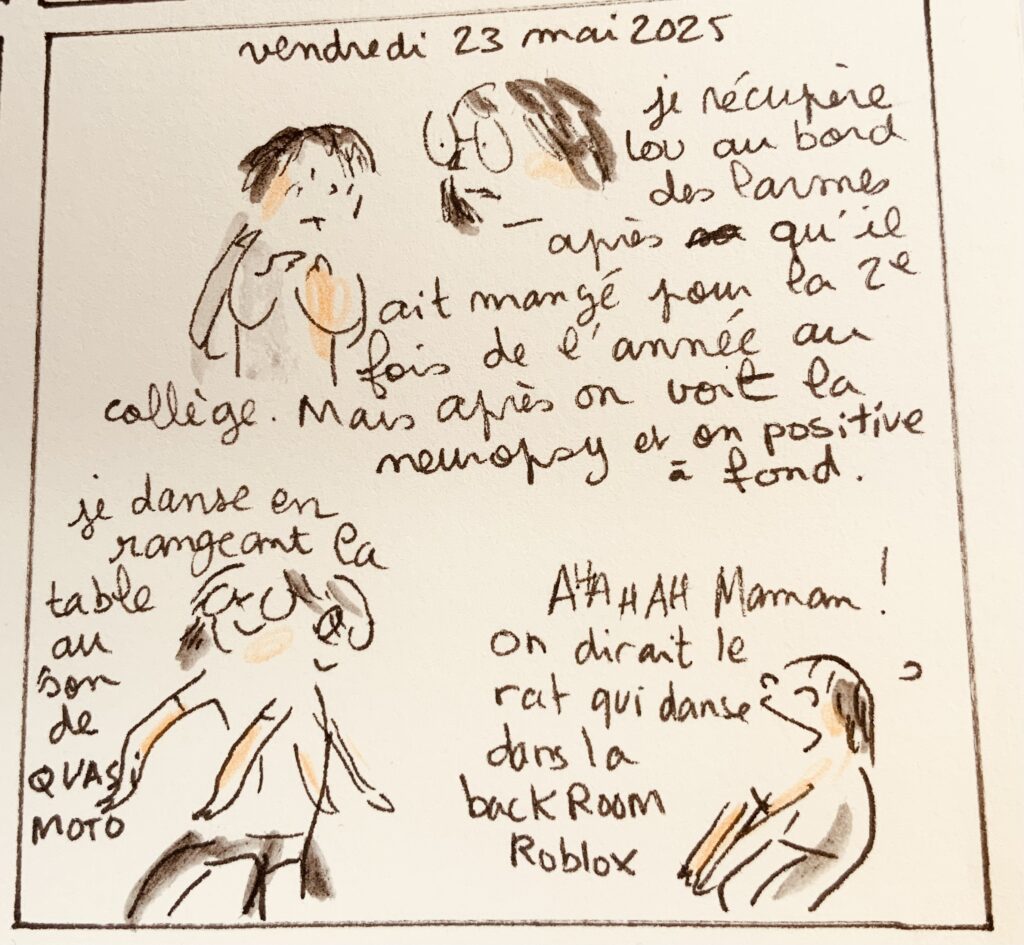 vendredi 23 mai 2025
je récupère
Lou au bord
des larmes
après qu'il
ait mangé pour la 2e
fois de l'année au
collège. Mais après on voit la
neuropsy et on positive
à fond.
je danse en
rangeant la
table
au
son
de
QUASI
MOTO
AHAHAH Maman !
on dirait le
rat qui danse
dans la
backRoom
Roblox